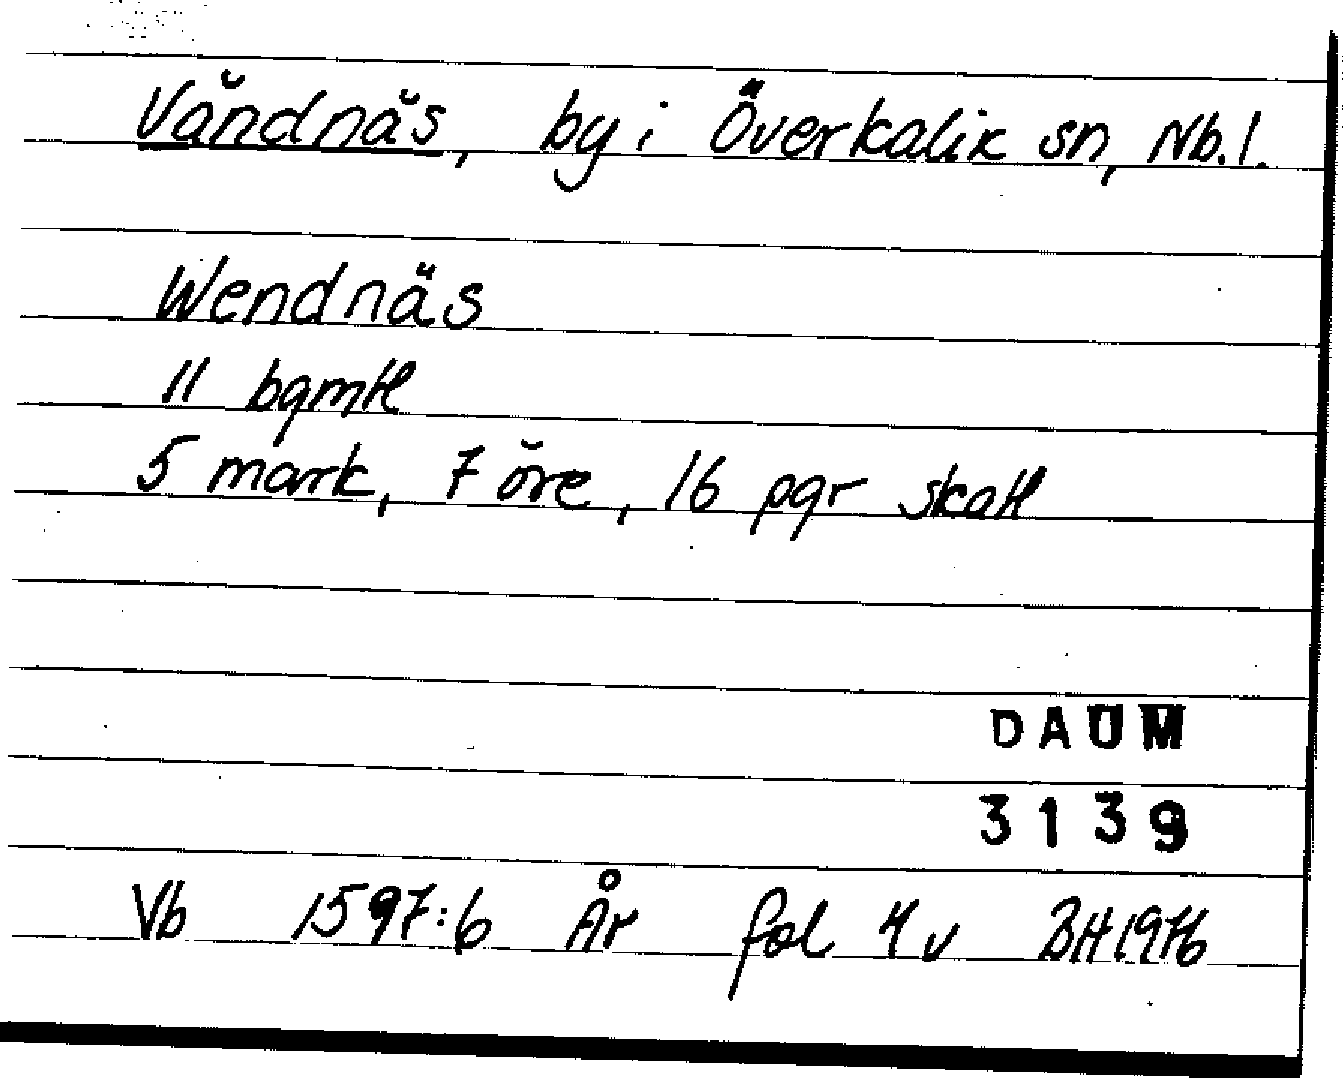 Vändnäs, by i Överkalix sn, Nb.l.
Wendnäs
11 bqmtl
5 mark, 7 öre, 16 pqr skatt
DAUM
3139
Vb 1597:6 År fol 4 v BH 1976